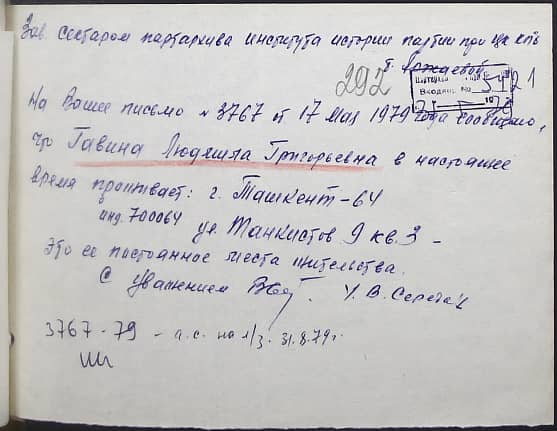 Зав. сектаром партархива института истории партии при ЦК КПБ
т.
292
Партархив
Входящ. No
5421
На Ваше письмо № 3767 от 17 мая 1979 года сообщаю,
что Гавина Людмила Григорьевна в настоящее
время проживает: г. Ташкент-64
инд. 700064 ул. Танкистов 9 кв. 3 -
это ее постоянное места жительства.
С уважением
3767-79 - а.с. на л/з. 31.8.79г.